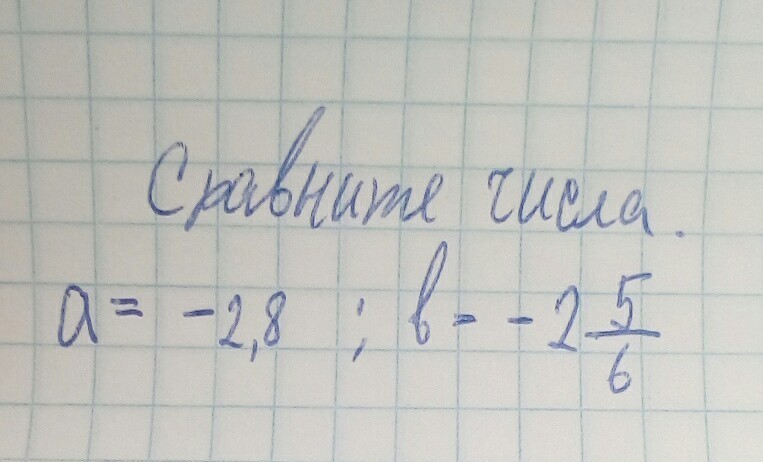 Сравните числа.
a = -2,8 ; b = -2 5/6